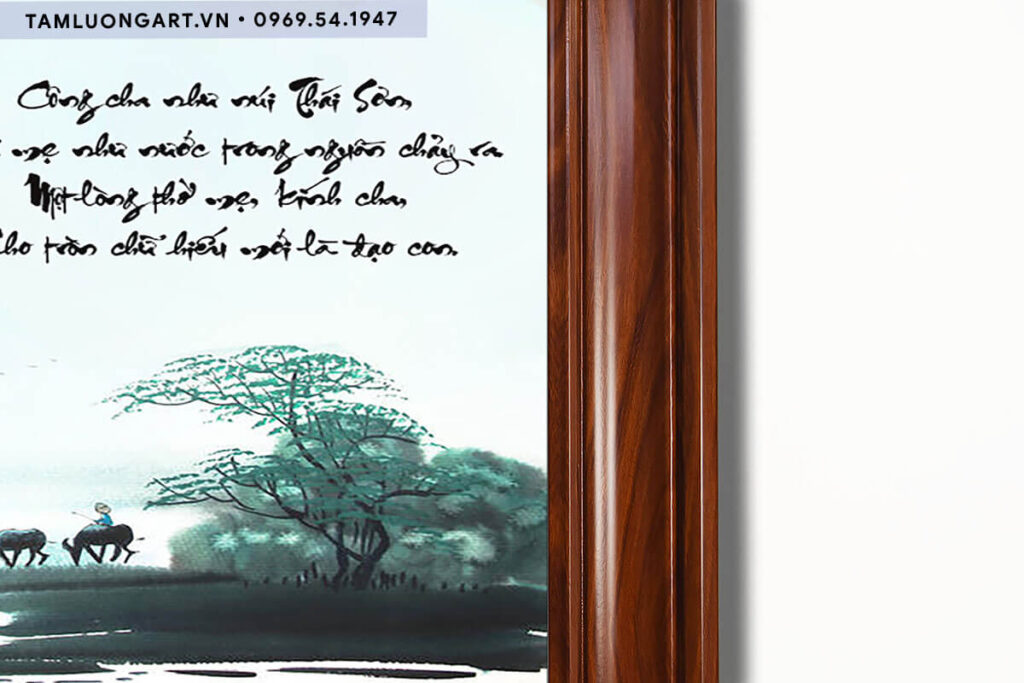 TAMLUONGART.VN • 0969.54.1947
Công cha như núi Thái Sơn
mẹ như nước trong nguồn chảy ra
Một lòng thờ mẹ, kính cha,
ho tròn chữ hiếu mới là đạo con.